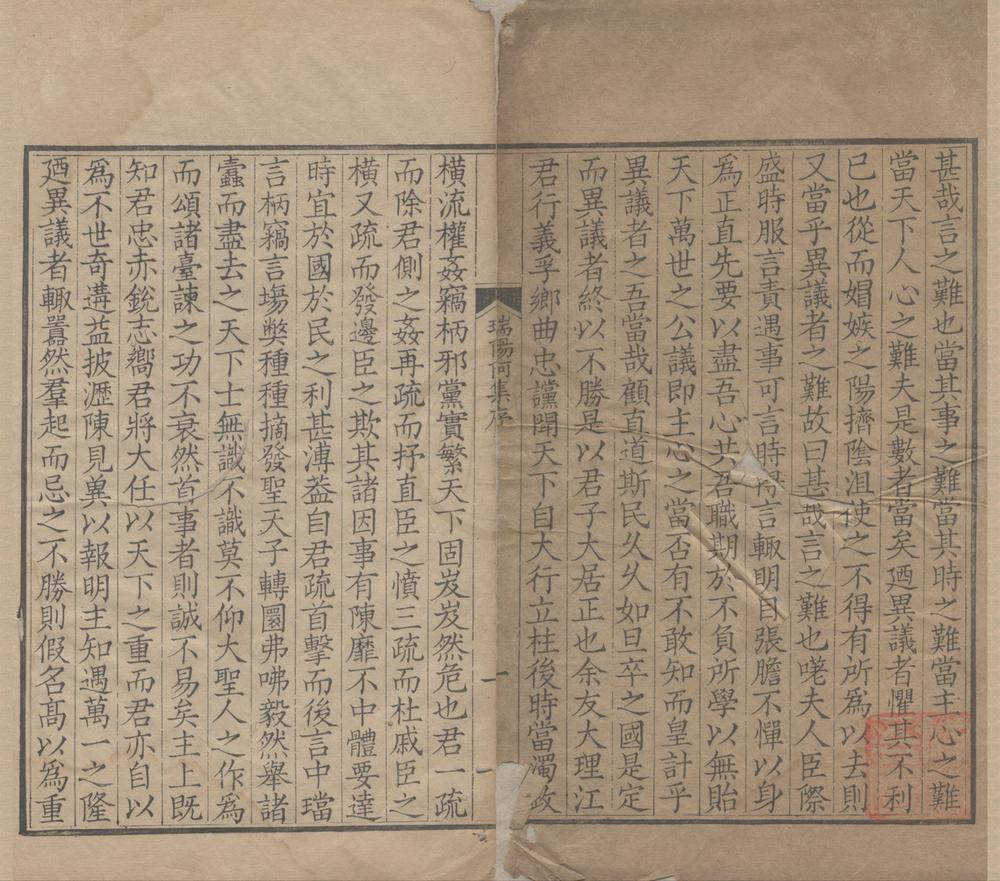 甚哉言之難也當其事之難當其時之難當主心之難
當天下人心之難夫是數者當矣廼異議者懼其不利
已也從而媢嫉之陽擠陰沮使之不得有所為以去則
又當乎異議者之難故曰甚哉言之難也嗟夫人臣際
盛時服言責遇事可言時得言輙明目張膽不憚以身
為正直先要以盡吾心共吾職期於不負所學以無貽
天下萬世之公議即主心之當否有不敢知而皇計乎
異議者之吾當哉顧直道斯民久久如旦卒之國是定
而異議者終以不勝是以君子大居正也余友大理江
君行義孚鄉曲忠讜聞天下自大行立柱後時當濁政
瑞陽阿集序
一
橫流權姦竊柄邪黨實繁天下固岌岌然危也君一疏
而除君側之姦再疏而抒直臣之憤三疏而杜戚臣之
橫又疏而發邊臣之欺其諸因事有陳靡不中體要達
時宜於國於民之利甚溥葢自君疏首擊而後言中璫
言柄竊言塲獘種種摘發聖天子轉圜弗咈毅然舉諸
蠹而盡去之天下士無識不識莫不仰大聖人之作為
而頌諸臺諫之功不衰然首事者則誠不易矣主上既
知君忠赤銳志嚮君將大任以天下之重而君亦自以
為不世奇遘益披瀝陳見兾以報明主知遇萬一之隆
廼異議者輙嚚然羣起而忌之不勝則假名高以為重